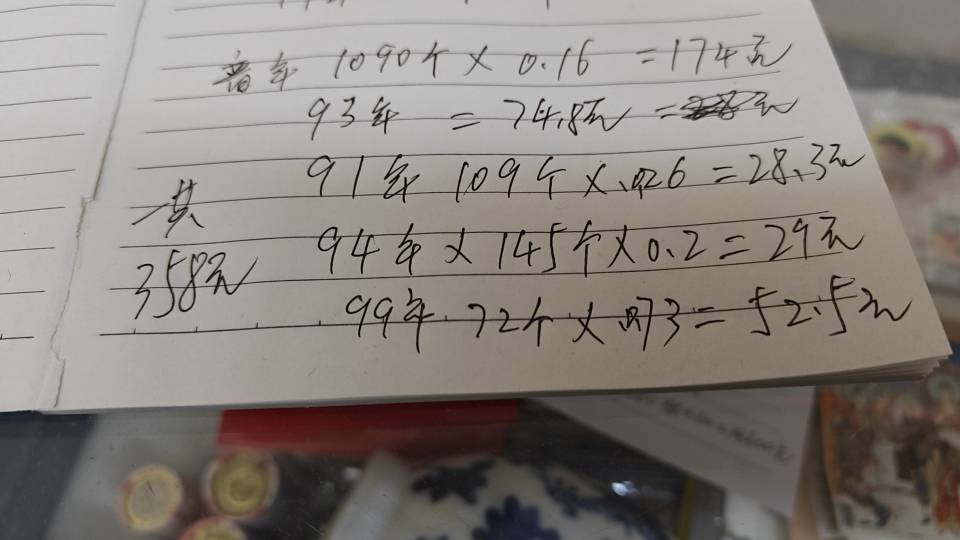 普年 1090个×0.16=174元
93年=74.8元=元
91年 109个×.026=28.3元
94年×145个×0.2=29元
99年 72个×.073=52.5元
共
358元